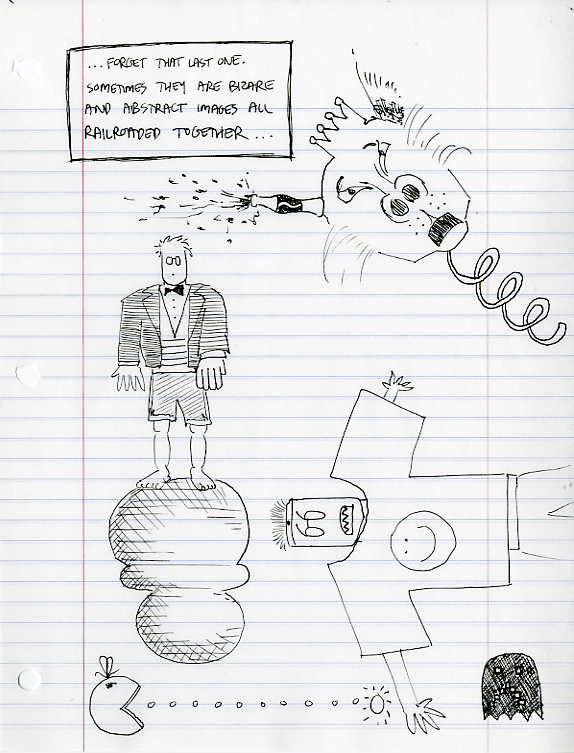 ...FORGET THAT LAST ONE.
SOMETIMES THEY ARE BIZARE
AND ABSTRACT IMAGES ALL
RAILROADED TOGETHER...